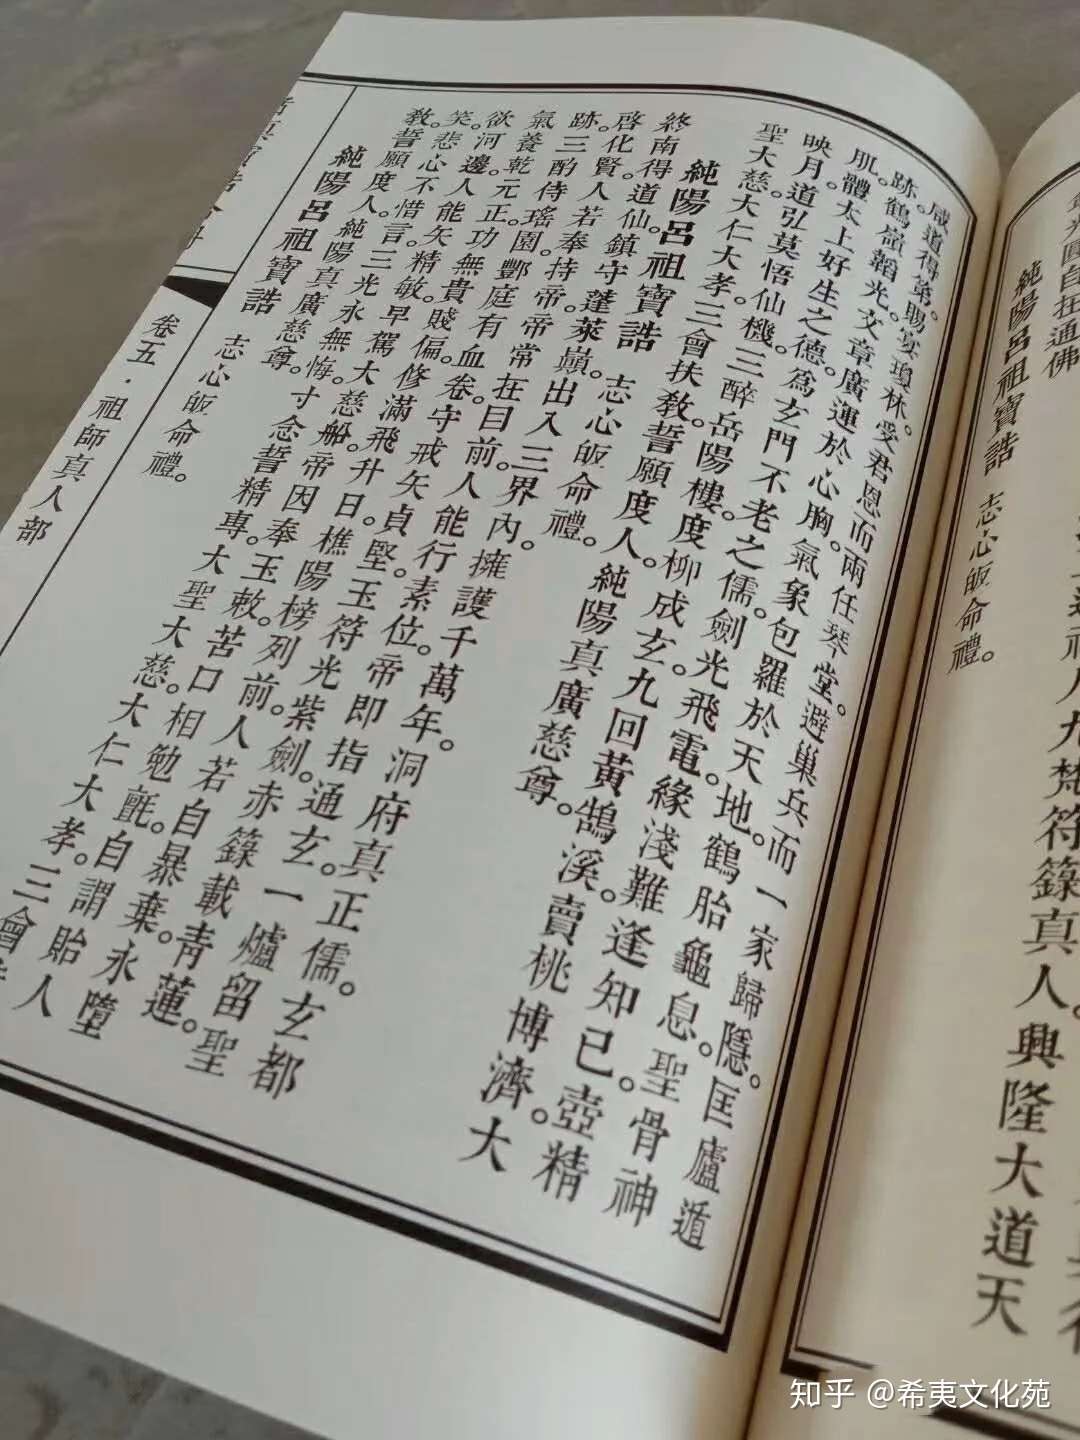 九梵符籙真人。興隆大道天
光圓自在通佛
純陽呂祖寶誥　志心皈命禮。
咸道得第。賜宴瓊林。受君恩而兩任琴堂。避巢兵而一家歸隱。匡廬遁
跡。鶴嶺韜光。文章廣運於心胸。氣象包羅於天地。鶴胎龜息。聖骨神
肌。體太上好生之德。為玄門不老之儒。劍光飛電。緣淺難逢知己。壺精
映月。道弘莫悟仙機。三醉岳陽樓。度柳成玄。九回黃鵠溪。賣桃博濟。大
聖大慈。大仁大孝。三會扶教。誓願度人。純陽真廣慈尊。
純陽呂祖寶誥　志心皈命禮。
終南得道仙。鎮守蓬萊巔。出入三界內。擁護千萬年。洞府真正儒。玄都
啓化賢。人若奉持帝。帝常在目前。人能行素位。帝即指通玄。一爐留聖
跡。三酌侍瑤園。酆庭有血卷。守戒矢貞堅。玉符光紫劍。赤籙載青蓮。
氣養乾元正。功無貴賤偏。修滿飛升日。樵陽榜列前。人若自暴棄。永墮
欲河邊。人能矢精敏。早駕大慈船。帝因奉玉敕。苦口相勉氈。自謂貽人
笑。悲心不惜言。三光永無悔。寸念誓精專。大聖大慈。大仁大孝。三會
教。誓願度人。純陽真廣慈尊。
純陽呂祖寶誥　志心皈命禮。
卷五·祖師真人部
知乎 @希夷文化苑